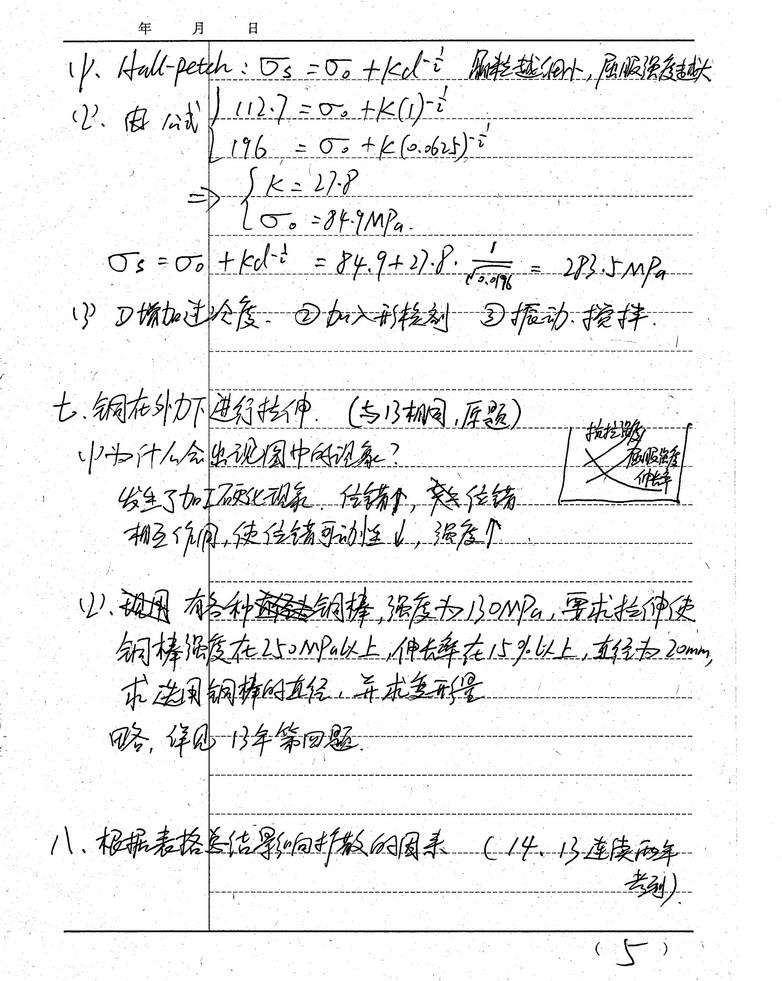 年 月 日
(1)、Hall-petch：σs = σ0 + Kd^-1/2 晶粒越细小，屈服强度越大
(2)、由公式 { 112.7 = σ0 + K(1)^-1/2
196 = σ0 + K(0.0625)^-1/2
⇒ { K = 27.8
σ0 = 84.9MPa.
σs = σ0 + Kd^-1/2 = 84.9 + 27.8 · 1/√0.0196 = 283.5MPa
(3) ①增加过冷度. ②加入形核剂 ③振动.搅拌.
七、铜在外力下进行拉伸. (与13相同,原题)
(1)为什么会出现图中的现象?
抗拉强度
屈服强度
伸长率
发生了加工硬化现象. 位错↑, 位错
相互作用,使位错可动性↓, 强度↑
(2). 有各种铜棒,强度为130MPa,要求拉伸使
铜棒强度在250MPa以上,伸长率在15%以上,直径为20mm,
求选用铜棒的直径,并求变形量
略,详见13年第四题.
八、根据表格总结影响扩散的因素 (14、13连续两年
考到).
(5)